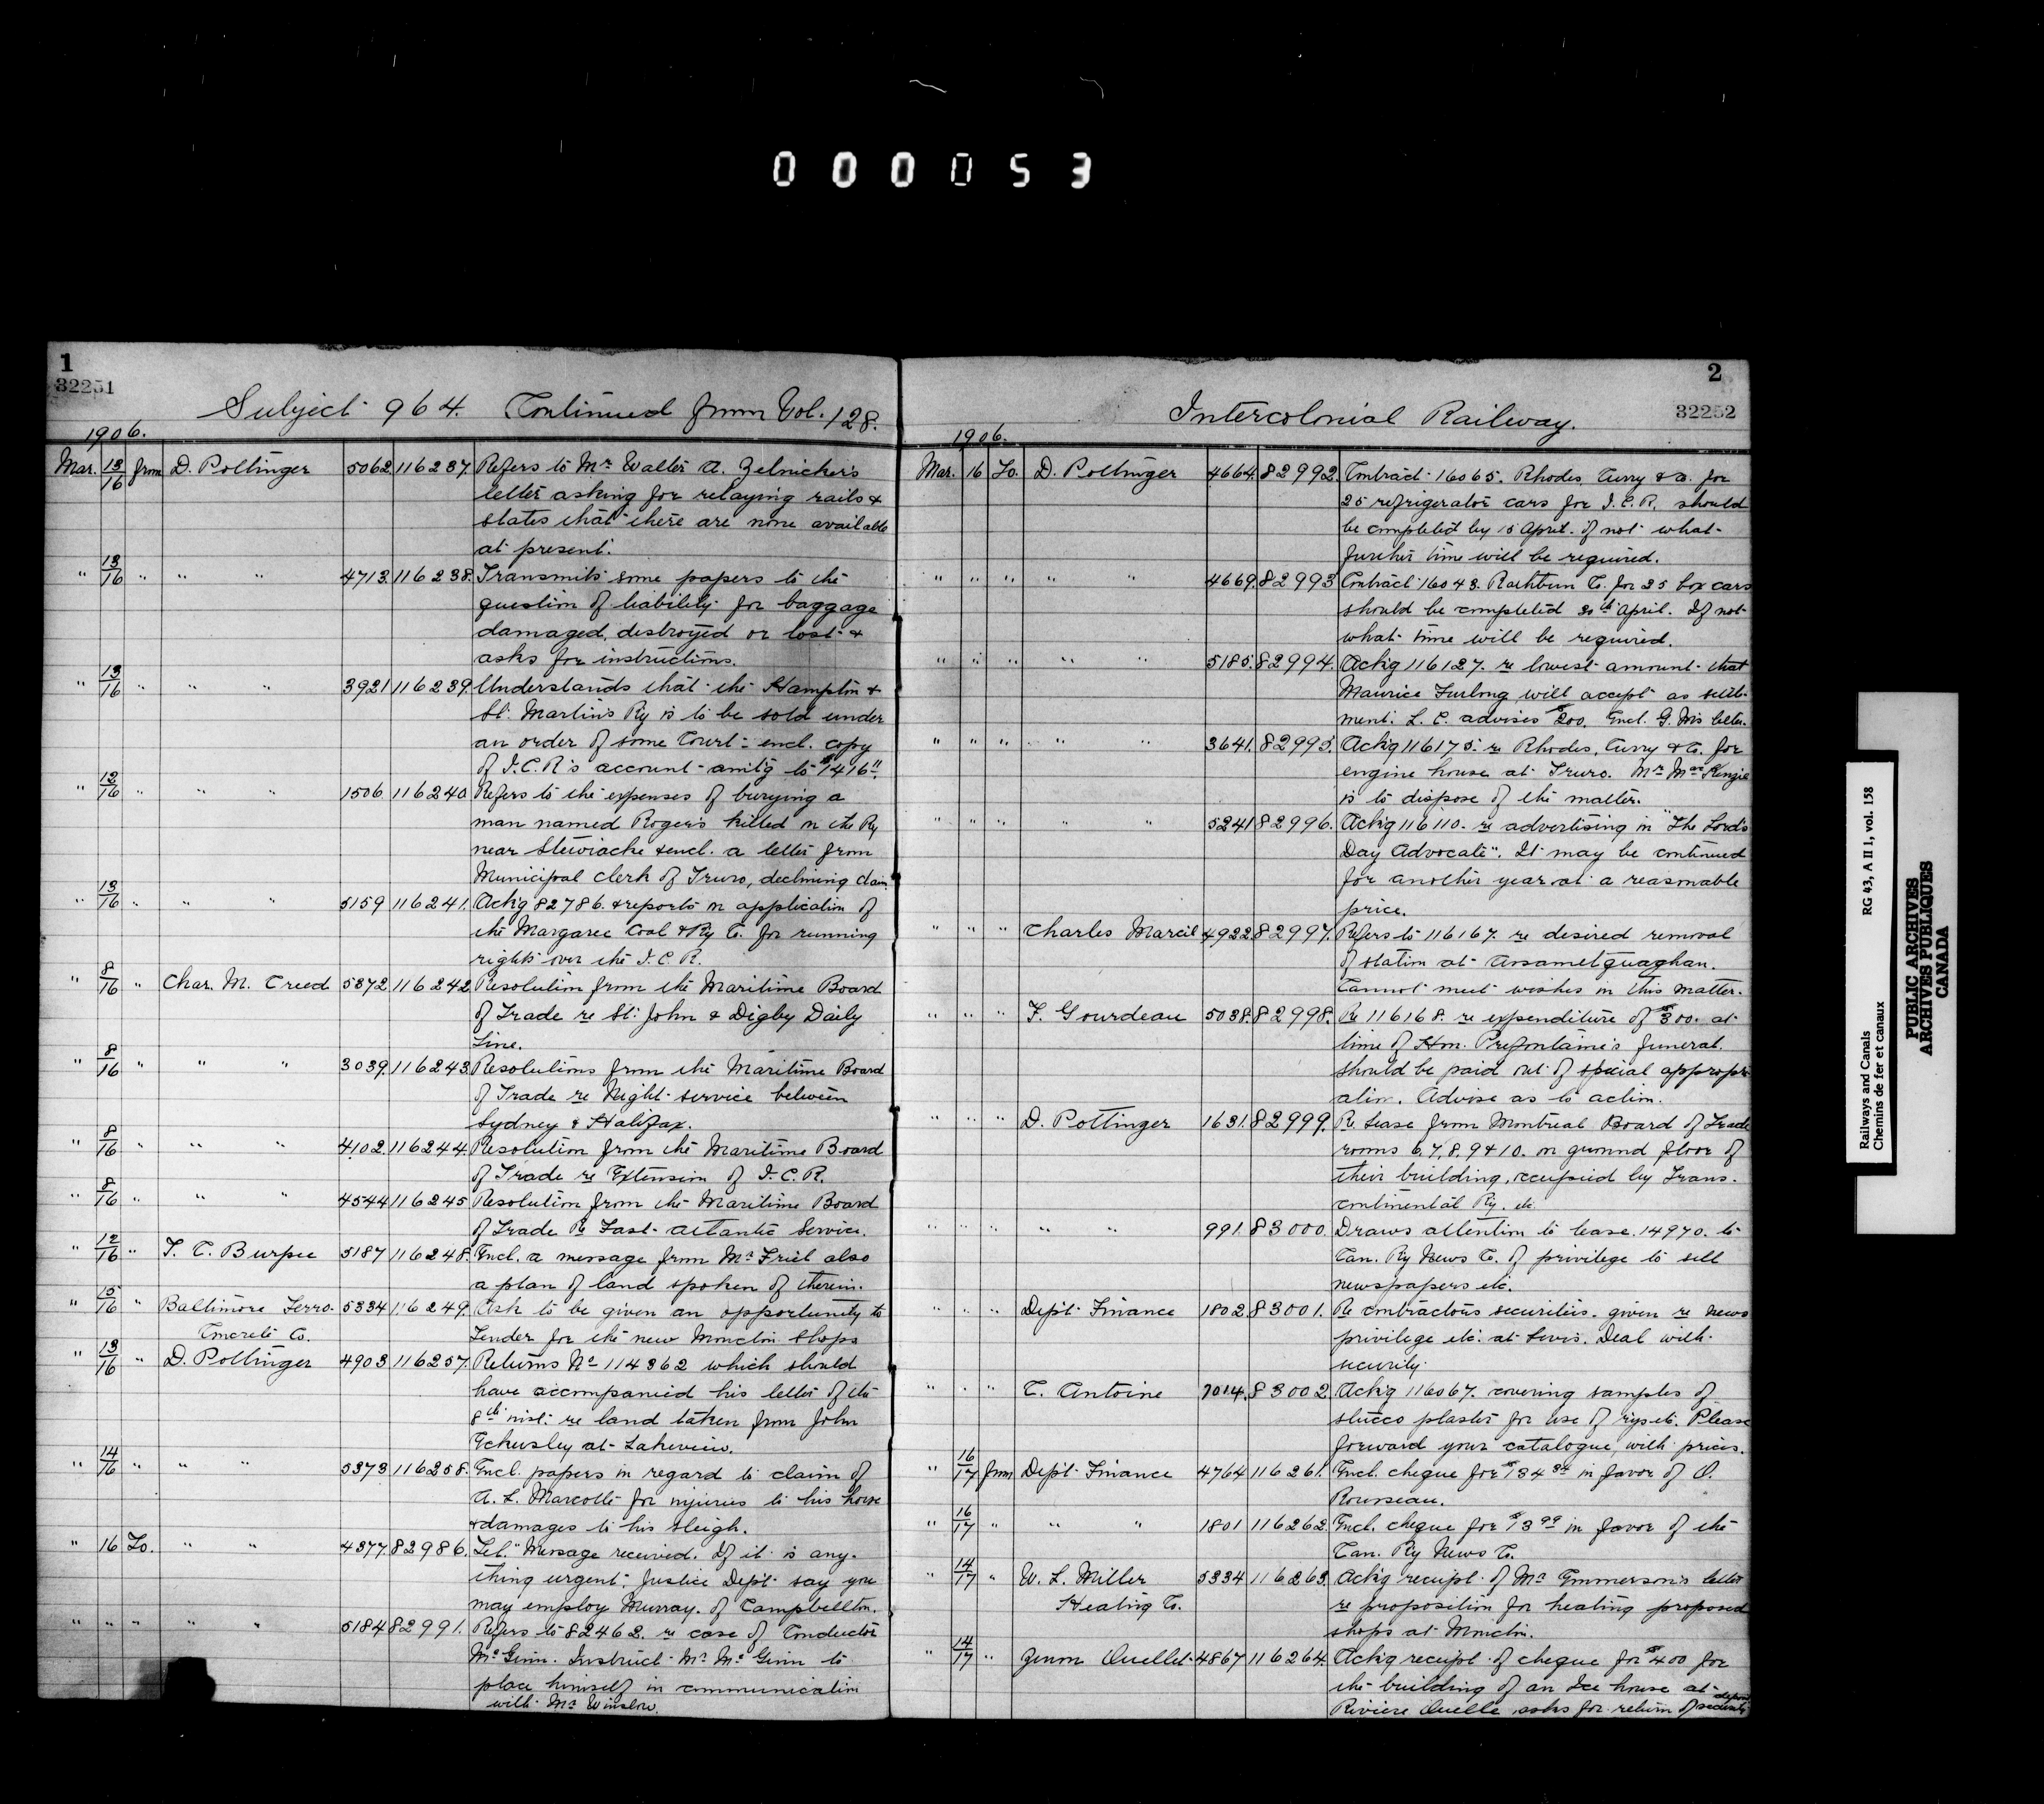 000053
1
32251
Subject 964. Continued from Vol. 128.
1906.
Mar. 13/16 from D. Pottinger 5062 116237. Refers to Mr Walter A. Zelnicker's
letter asking for relaying rails &
states that there are none available
at present.
" 13/16 " " " 4713. 116238. Transmits some papers to the
question of liability for baggage
damaged, destroyed or lost &
asks for instructions.
" 13/16 " " " 3921 116239. Understands that the Hampton &
St. Martin's Ry is to be sold under
an order of some Court - encl. copy
of I.C.R's account amt'g to $1416 11
" 12/16 " " " 1506 116240 Refers to the expenses of burying a
man named Rogers killed on the Ry
near Stewiacke & encl. a letter from
Municipal Clerk of Truro, declining claim.
" 13/16 " " " 5159 116241. Ackg 82786. & reports on application of
the Margaree Coal & Ry Co. for running
rights over the I.C.R.
" 8/16 " Char. M. Creed 5372 116242 Resolution from the Maritime Board
of Trade re St. John & Digby Daily
Line.
" 8/16 " " " 3039. 116243 Resolutions from the Maritime Board
of Trade re Night service between
Sydney & Halifax.
" 8/16 " " " 4102. 116244 Resolution from the Maritime Board
of Trade re Extension of I.C.R.
" 8/16 " " " 4544 116245 Resolution from the Maritime Board
of Trade Re Fast Atlantic Service.
" 12/16 " T. C. Burpee 5187 116248. Encl. a message from Mr Friel also
a plan of land spoken of therein.
" 15/16 " Baltimore Ferro- 5334 116249. Ask to be given an opportunity to
Concrete Co. Tender for the new Moncton Shops
" 13/16 " D. Pottinger 4903 116257. Returns No 114362 which should
have accompanied his letter of the
8th inst. re land taken from John
Eckersley at Lakeview.
" 14/16 " " " 5373 116258. Encl. papers in regard to claim of
A. L. Marcotte for injuries to his horse
& damages to his sleigh.
" 16 To. " " 4377. 82986. Tel. "Message received. If it is any-
thing urgent. Justice Dept say you
may employ Murray. of Campbellton.
" " " " " 5184 82991. Refers to 82462. re case of Conductor
McGinn. Instruct Mr McGinn to
place himself in communication
with Mr Winslow.
2
32252
Intercolonial Railway.
1906.
Mar. 16 To. D. Pottinger 4664. 82992. Contract 16065. Rhodes Curry & Co. for
25 refrigerator cars for I.C.R. should
be completed by 15 April. If not what
further time will be required.
" " " " " 4669. 82993 Contract 16043. Rathbun Co. for 25 box cars
should be completed 30th April. If not
what time will be required.
" " " " " 5185. 82994. Ackg 116127. re lowest amount that
Maurice Furlong will accept as settle-
ment. L. C. advises $200. Encl. G. M's letter.
" " " " " 3641. 82995. Ackg 116175. re Rhodes, Curry & Co. for
engine house at Truro. Mr MacKenzie
is to dispose of the matter.
" " " " " 5241 82996. Ackg 116110. re advertising in "The Lord's
Day Advocate". It may be continued
for another year at a reasonable
price.
" " " Charles Marcil 4922. 82997. Refers to 116167. re desired removal
of station at Assametquaghan.
Cannot meet wishes in this matter.
" " " F. Gourdeau 5038. 82998. Re 116168. re expenditure of $300. at
time of Hon. Prefontaine's funeral.
should be paid out of special appropri-
ation. Advise as to action.
" " " D. Pottinger 1631. 82999. Re Lease from Montreal Board of Trade
rooms 6,7,8,9 & 10. on ground floor of
their building, occupied by Trans-
continental Ry. etc.
" " " " " 991. 83000. Draws attention to lease. 14970. to
Can. Ry News Co. of privilege to sell
newspapers etc.
" " " Dept. Finance 1802. 83001. Re contractors securities. given re news
privilege etc. at Levis. Deal with
security.
" " " C. Antoine 7014. 83002 Ackg 116067. covering samples of
stucco plaster for use of rys etc. Please
forward your catalogue, with prices.
" 16/17 from Dept. Finance 4764 116261. Encl. cheque for $134 34 in favor of O.
Rousseau.
" 16/17 " " " 1801 116262. Encl. cheque for $13 99 in favor of the
Can. Ry News Co.
" 14/17 " W. L. Miller 5334 116263. Ackg receipt of Mr Emmerson's letter
Heating Co. re proposition for heating proposed
shops at Moncton.
" 14/17 " Zenon Ouellet 4867 116264. Ackg receipt of cheque for $400 for
the building of an Ice house at
Riviere Ouelle, asks for return of deposit security
Railways and Canals RG 43, A II 1, vol. 158
Chemins de fer et canaux
PUBLIC ARCHIVES
ARCHIVES PUBLIQUES
CANADA